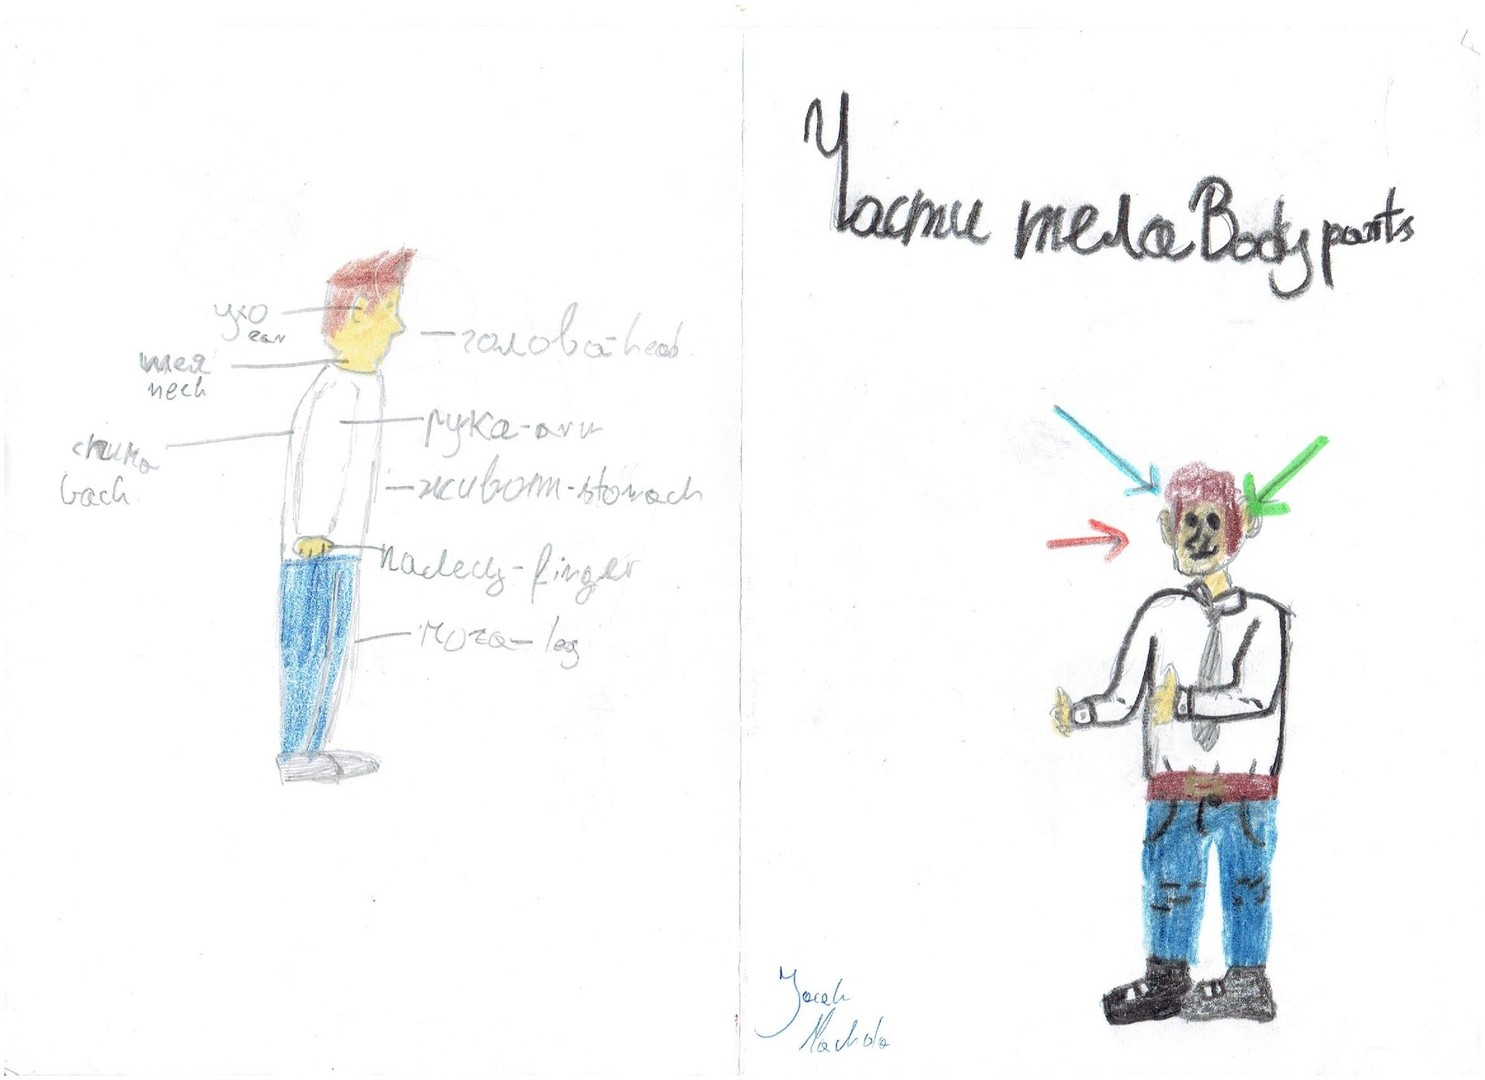 ухо
ear
шея
neck
спина
back
голова-head
рука-arm
живот-stomach
палец-finger
нога-leg
Части тела Body parts